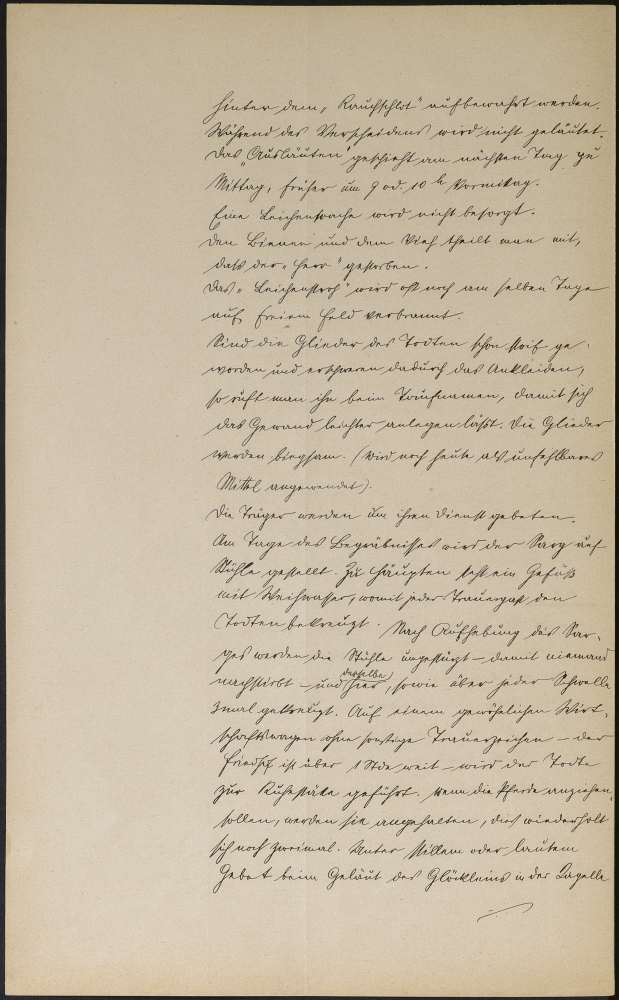 hinter dem „Rauchschlot“ aufbewahrt werden.
Während des Verscheidens wird nicht geläutet.
Das „Ausläuten“ geschieht am nächsten Tag zu
Mittag, früher um 9 od. 10 h Vormittag.
Eine Leichenwache wird nicht besorgt.
Den Bienen und dem Vieh theilt man mit,
daß der „Herr“ gestorben.
Das „Leichenstroh“ wird oft noch am selben Tage
auf freiem Feld verbrannt.
Sind die Glieder des Todten schon steif ge-
worden und erschweren dadurch das Ankleiden,
so ruft man ihn beim Taufnamen, damit sich
das Gewand leichter anlegen läßt. Die Glieder
werden biegsam. (Wird noch heute als unfehlbares
Mittel angewendet).
Die Träger werden um ihren Dienst gebeten.
Am Tage des Begräbnisses wird der Sarg auf
Stühle gestellt. Zu Häupten steht ein Gefäß
mit Weihwasser, womit jeder Trauergast den
Todten bekreuzt. Nach Aufhebung des Sar-
ges werden die Stühle umgestürzt – damit niemand
nachstirbt – und derselbe hier, sowie über jeder Schwelle
3mal gekreuzt. Auf einem gewöhnlichen Wirt-
schaftswagen ohne sonstige Trauerzeichen – der
Friedhof ist über 1 Stde weit – wird der Todte
zur Ruhestätte geführt. Wenn die Pferde anziehen
sollen, werden sie angehalten, dies wiederholt
sich noch zweimal. Unter stillem oder lautem
Gebet beim Geläut des Glöckleins in der Capelle